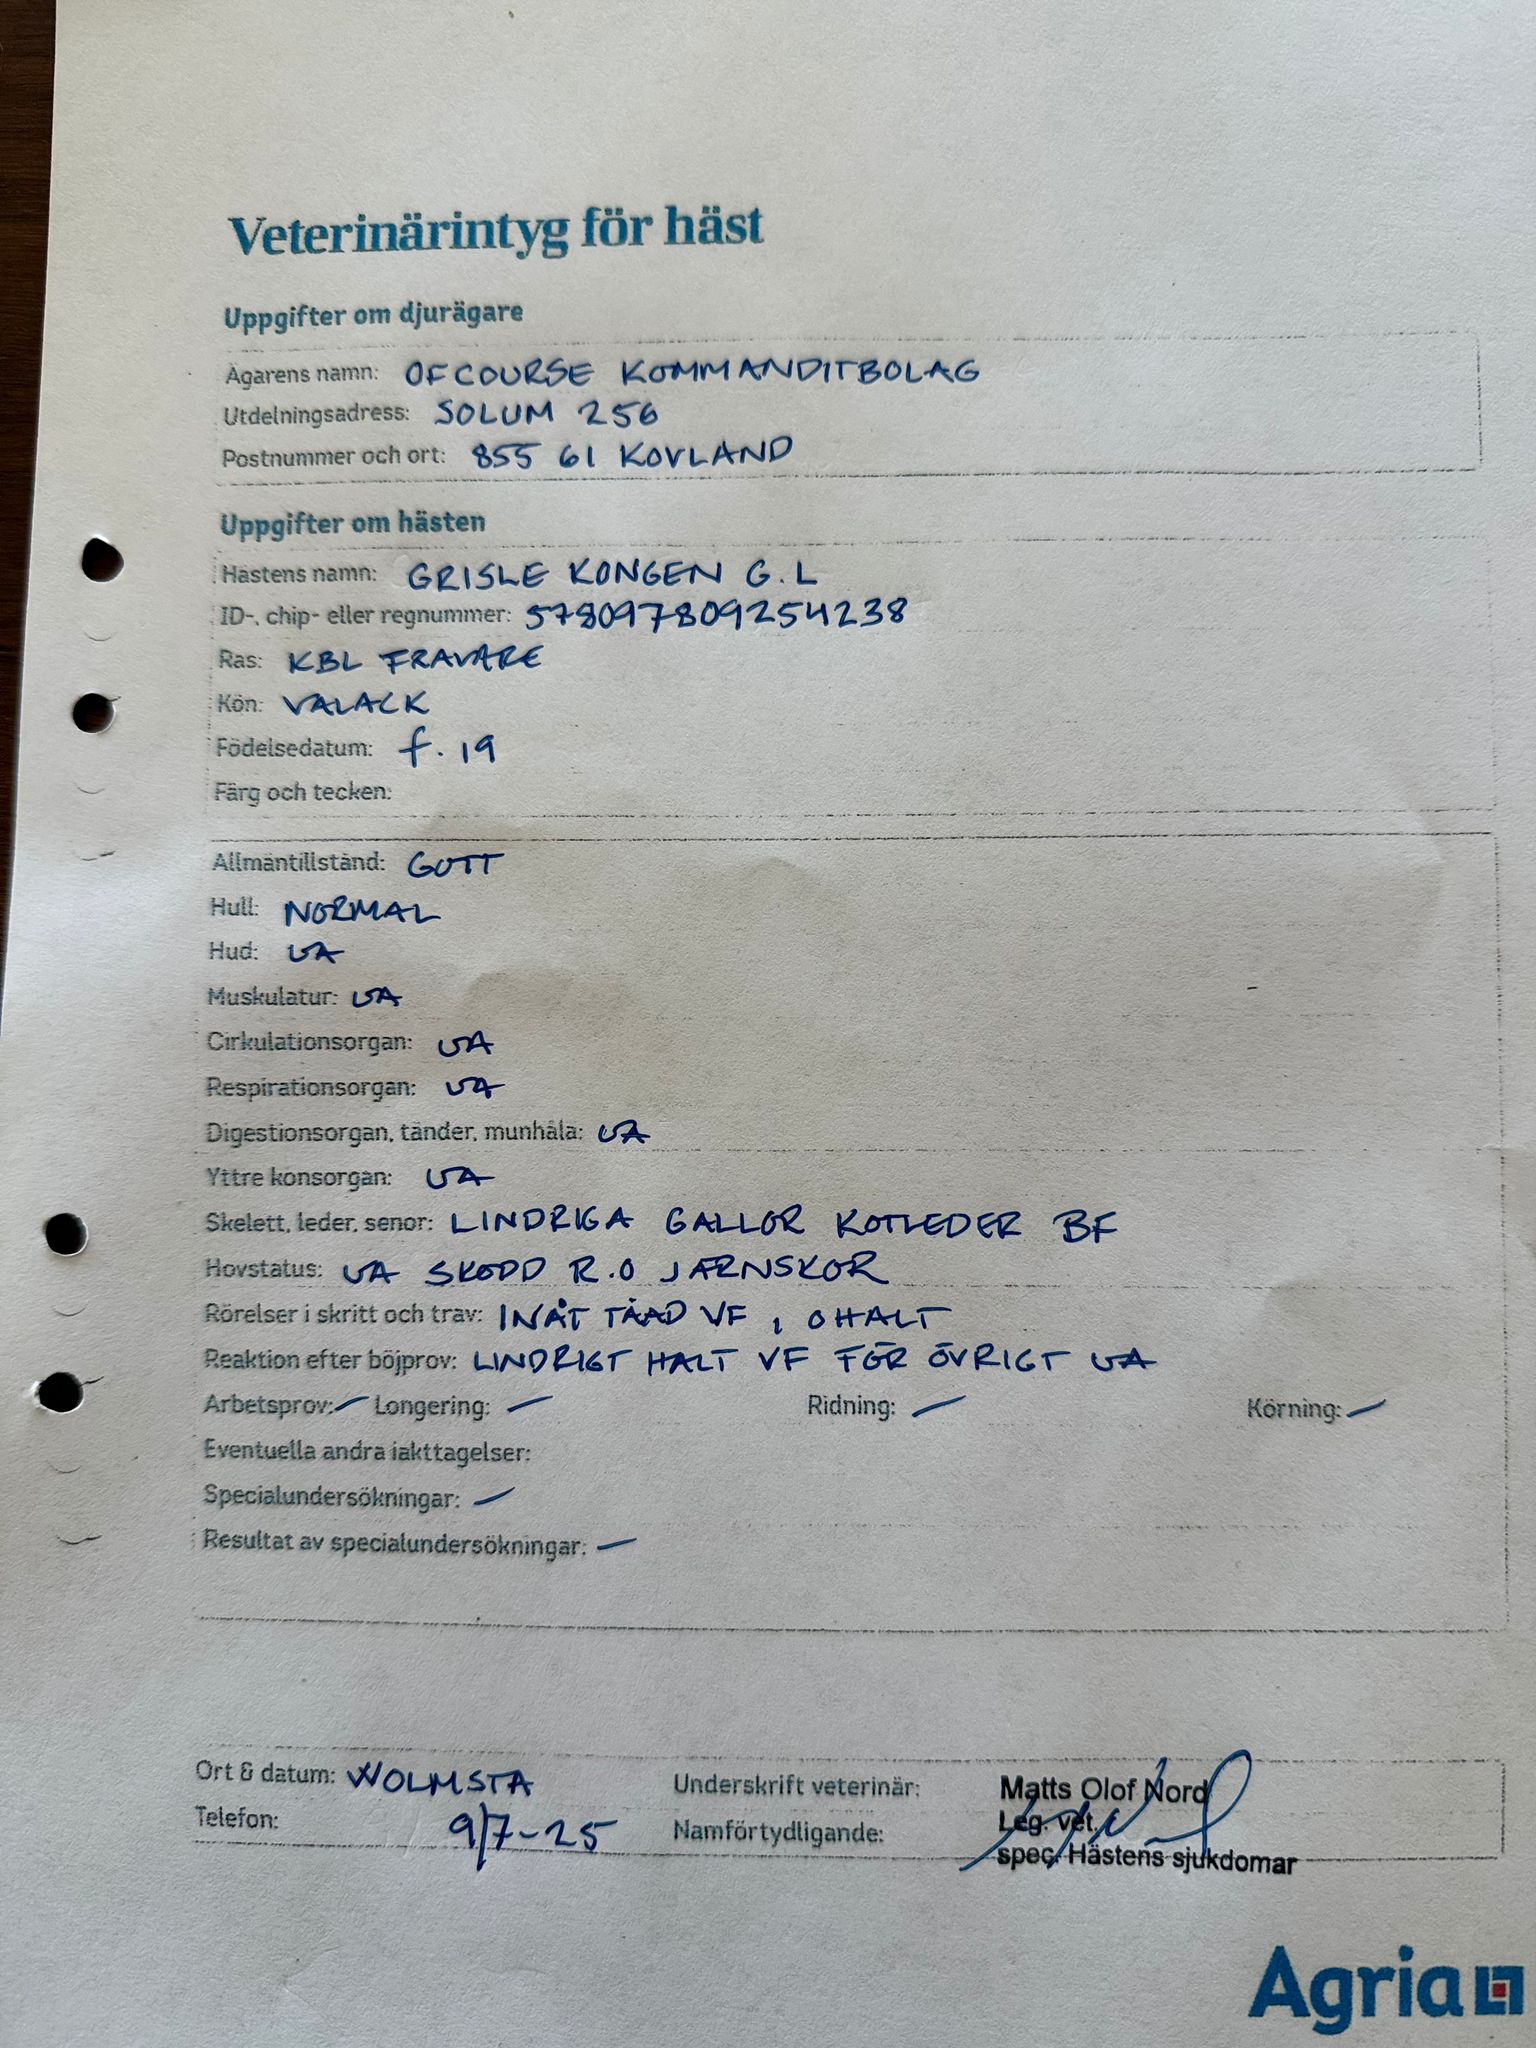 Veterinärintyg för häst
Uppgifter om djurägare
Ägarens namn: OFCOURSE KOMMANDITBOLAG
Utdelningsadress: SOLUM 256
Postnummer och ort: 855 61 KOVLAND
Uppgifter om hästen
Hästens namn: GRISLE KONGEN G.L
ID-, chip- eller regnummer: 578097809254238
Ras: KBL TRAVARE
Kön: VALACK
Födelsedatum: f. 19
Färg och tecken:
Allmäntillstånd: GOTT
Hull: NORMAL
Hud: UA
Muskulatur: UA
Cirkulationsorgan: UA
Respirationsorgan: UA
Digestionsorgan, tänder, munhåla: UA
Yttre könsorgan: UA
Skelett, leder, senor: LINDRIGA GALLOR KOTLEDER BF
Hovstatus: UA SKODD R.O JÄRNSKOR
Rörelser i skritt och trav: INÅT TÅAD VF, OHALT
Reaktion efter böjprov: LINDRIGT HALT VF FÖR ÖVRIGT UA
Arbetsprov: – Longering: – Ridning: – Körning: –
Eventuella andra iakttagelser:
Specialundersökningar: –
Resultat av specialundersökningar: –
Ort & datum: WOLMSTA Underskrift veterinär: Matts Olof Nord
Leg. vet.
Telefon: 9/7-25 Namförtydligande:
spec. Hästens sjukdomar
Agria